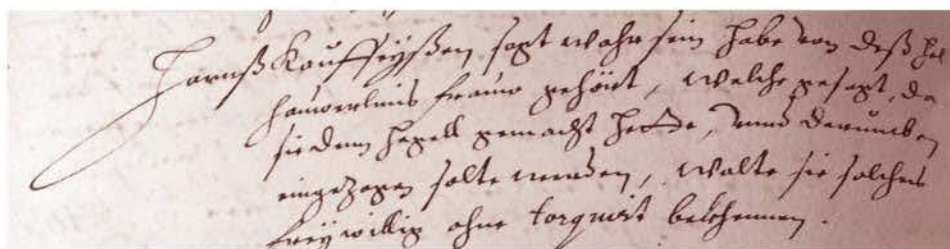 Hannß Kauffeyßen sagt wahr sein habe von deß
frauw gehört, welche gesagt, da
sie dem hagell gemacht hette, unnd darumben
eingezogen solte werden, wolte sie solches
freywillig ohne torquirt bekhennen.